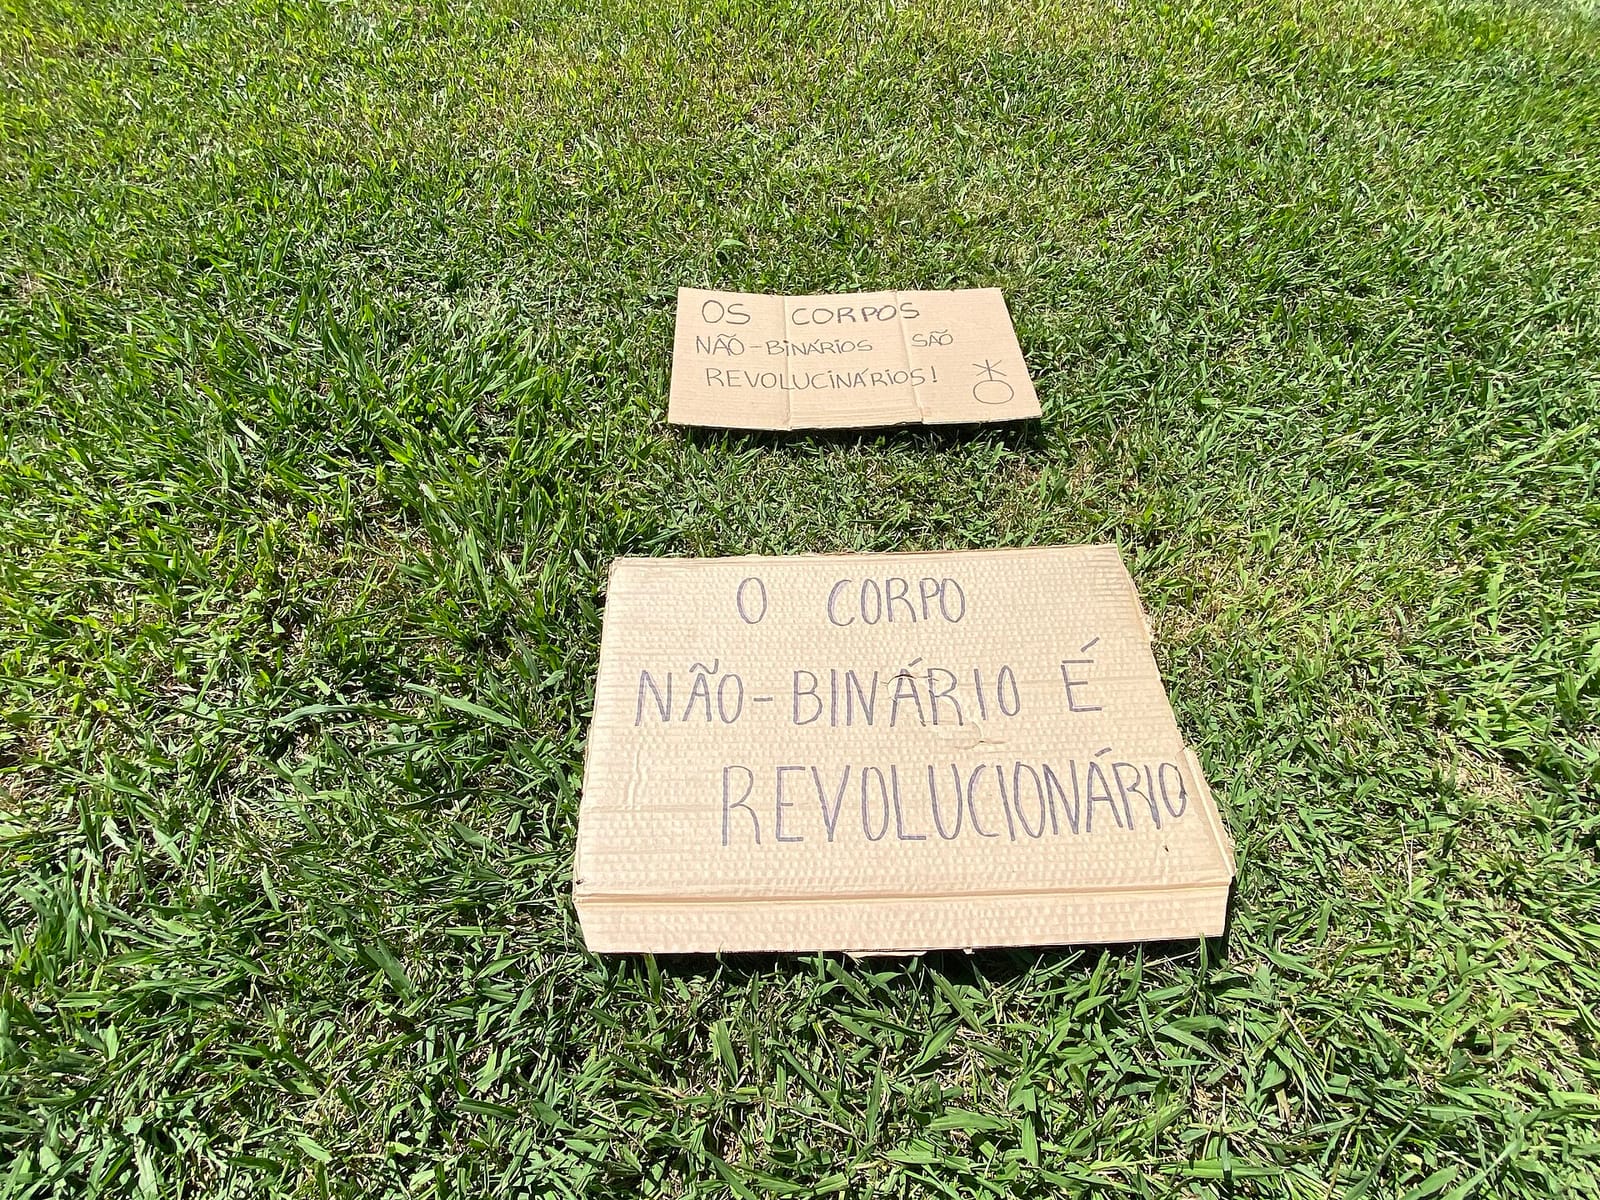 OS CORPOS
NÃO-BINÁRIOS SÃO
REVOLUCINÁRIOS!
O CORPO
NÃO-BINÁRIO É
REVOLUCIONÁRIO